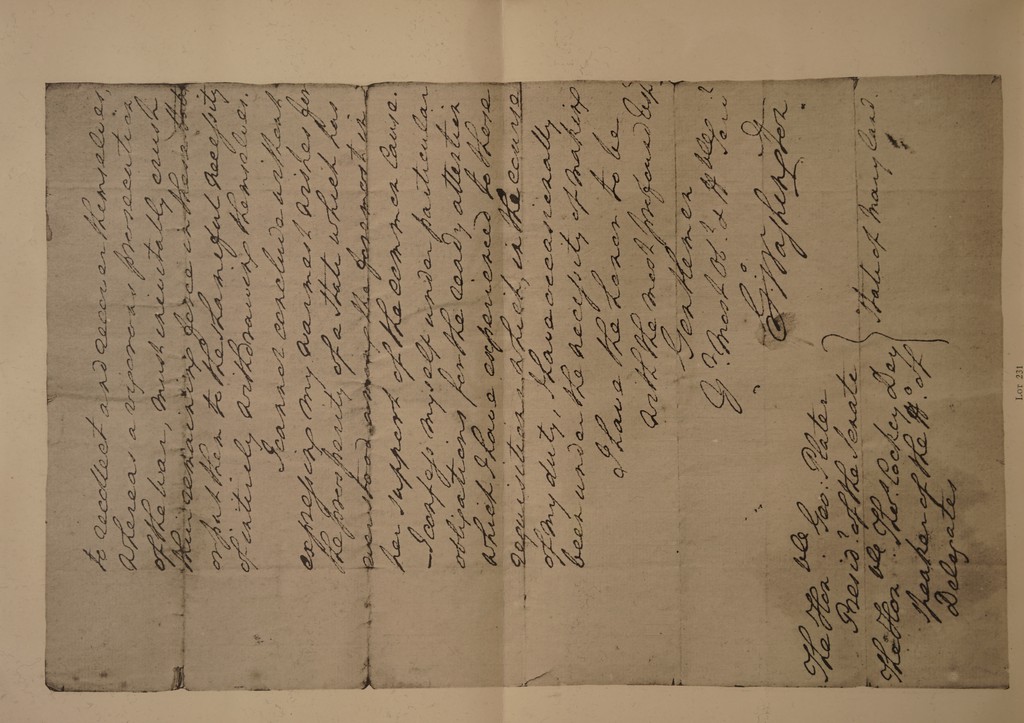 to recollect and recover themselves,
whereas a vigorous prosecution
of the War, must inevitably crush
their remaining force in these states
or put them to the shameful necessity
of entirely withdrawing themselves.
I cannot conclude without
expressing my warmest wishes for
the prosperity of a State which has
ever stood among the foremost in
her support of the common cause.
I confess myself under particular
obligations for the ready attention
which I have experienced to those
requisitions which, in the course
of my duty, I have occasionally
been under the necessity of making
I have the honor to be
with the most profound Resp.t
Gentlemen
Y.r most Ob.t & H'ble Ser.t
G.o Washington
The Hon.ble Geo. Plater
Presid.t of the Senate
The Hon.ble Tho.s Cockey Dey
Speaker of the H.o of
Delegates
State of Maryland.
LOT 231